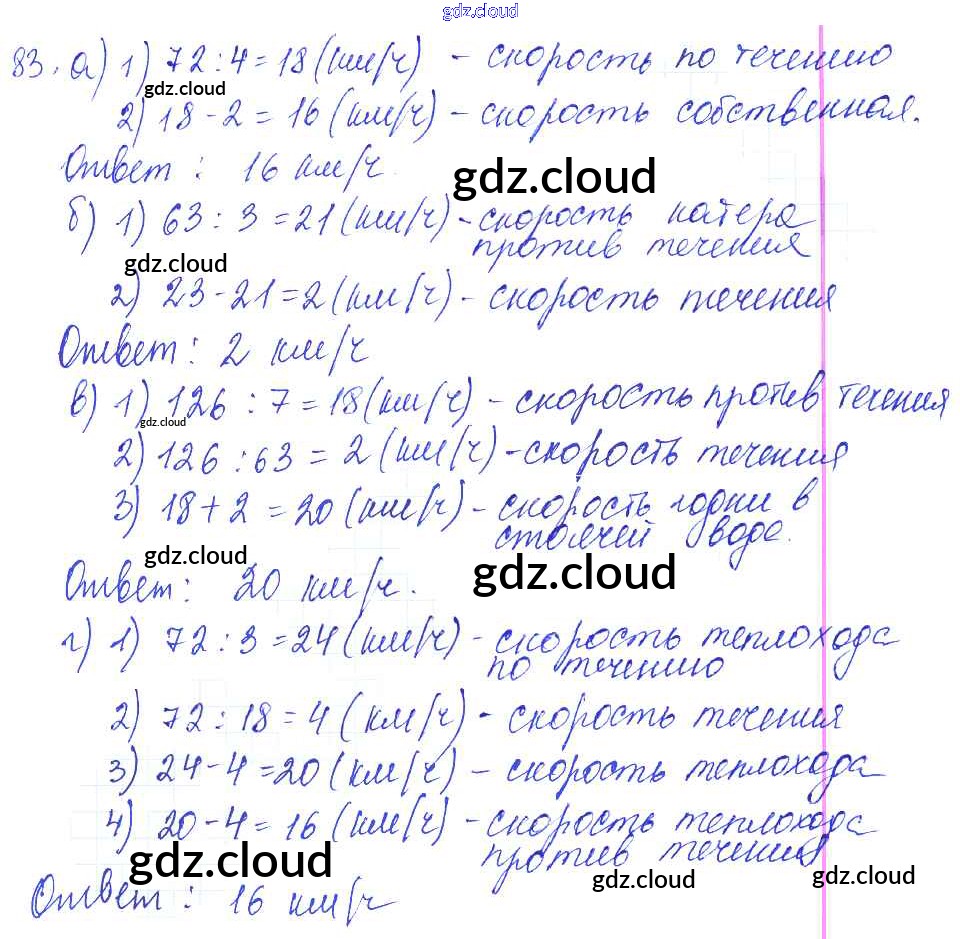 gdz.cloud
83. а) 1) 72 : 4 = 18 (км/ч) - скорость по течению
gdz.cloud
2) 18 - 2 = 16 (км/ч) - скорость собственная.
Ответ : 16 км/ч.
gdz.cloud
б) 1) 63 : 3 = 21 (км/ч) - скорость катера
против течения
gdz.cloud
2) 23 - 21 = 2 (км/ч) - скорость течения
Ответ : 2 км/ч
в) 1) 126 : 7 = 18 (км/ч) - скорость против течения
gdz.cloud
2) 126 : 63 = 2 (км/ч) - скорость течения
3) 18 + 2 = 20 (км/ч) - скорость лодки в
стоячей воде.
gdz.cloud
gdz.cloud
Ответ : 20 км/ч.
г) 1) 72 : 3 = 24 (км/ч) - скорость теплохода
по течению
2) 72 : 18 = 4 (км/ч) - скорость течения
3) 24 - 4 = 20 (км/ч) - скорость теплохода
4) 20 - 4 = 16 (км/ч) - скорость теплохода
против течения
gdz.cloud
gdz.cloud
gdz.cloud
Ответ : 16 км/ч